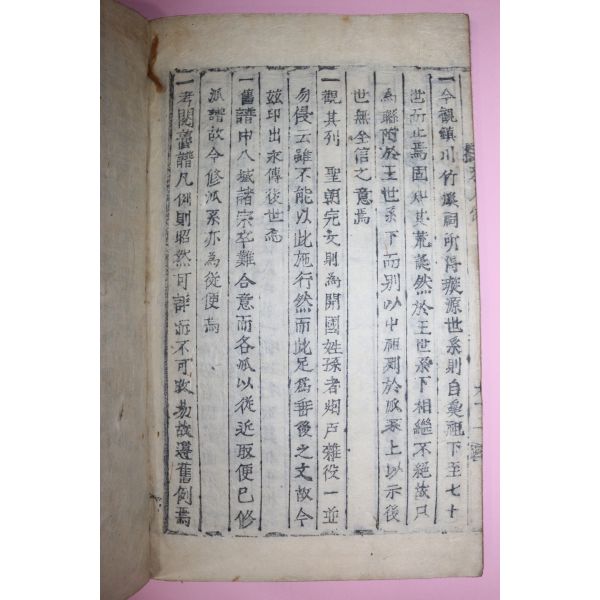 一今觀鎭川竹溪祠所得璿源世系則自奚祖下至七十
世而止焉固知其荒誕然於王世系下相繼不絶故只
爲縣附於王世系下而別以中祖列於派系上以示後
世無全信之意焉
一觀其列 聖朝完文則爲開國姓孫者烟戶雜役一並
勿侵云雖不能以此施行然而此足爲垂後之文故今
玆印出永傳後世焉
一舊譜中八域諸宗卒難合意而各派以從近取便已修
派譜故今修派系亦爲從便焉
一考閱舊譜凡例則昭然可詳而不可改易故遵舊例焉